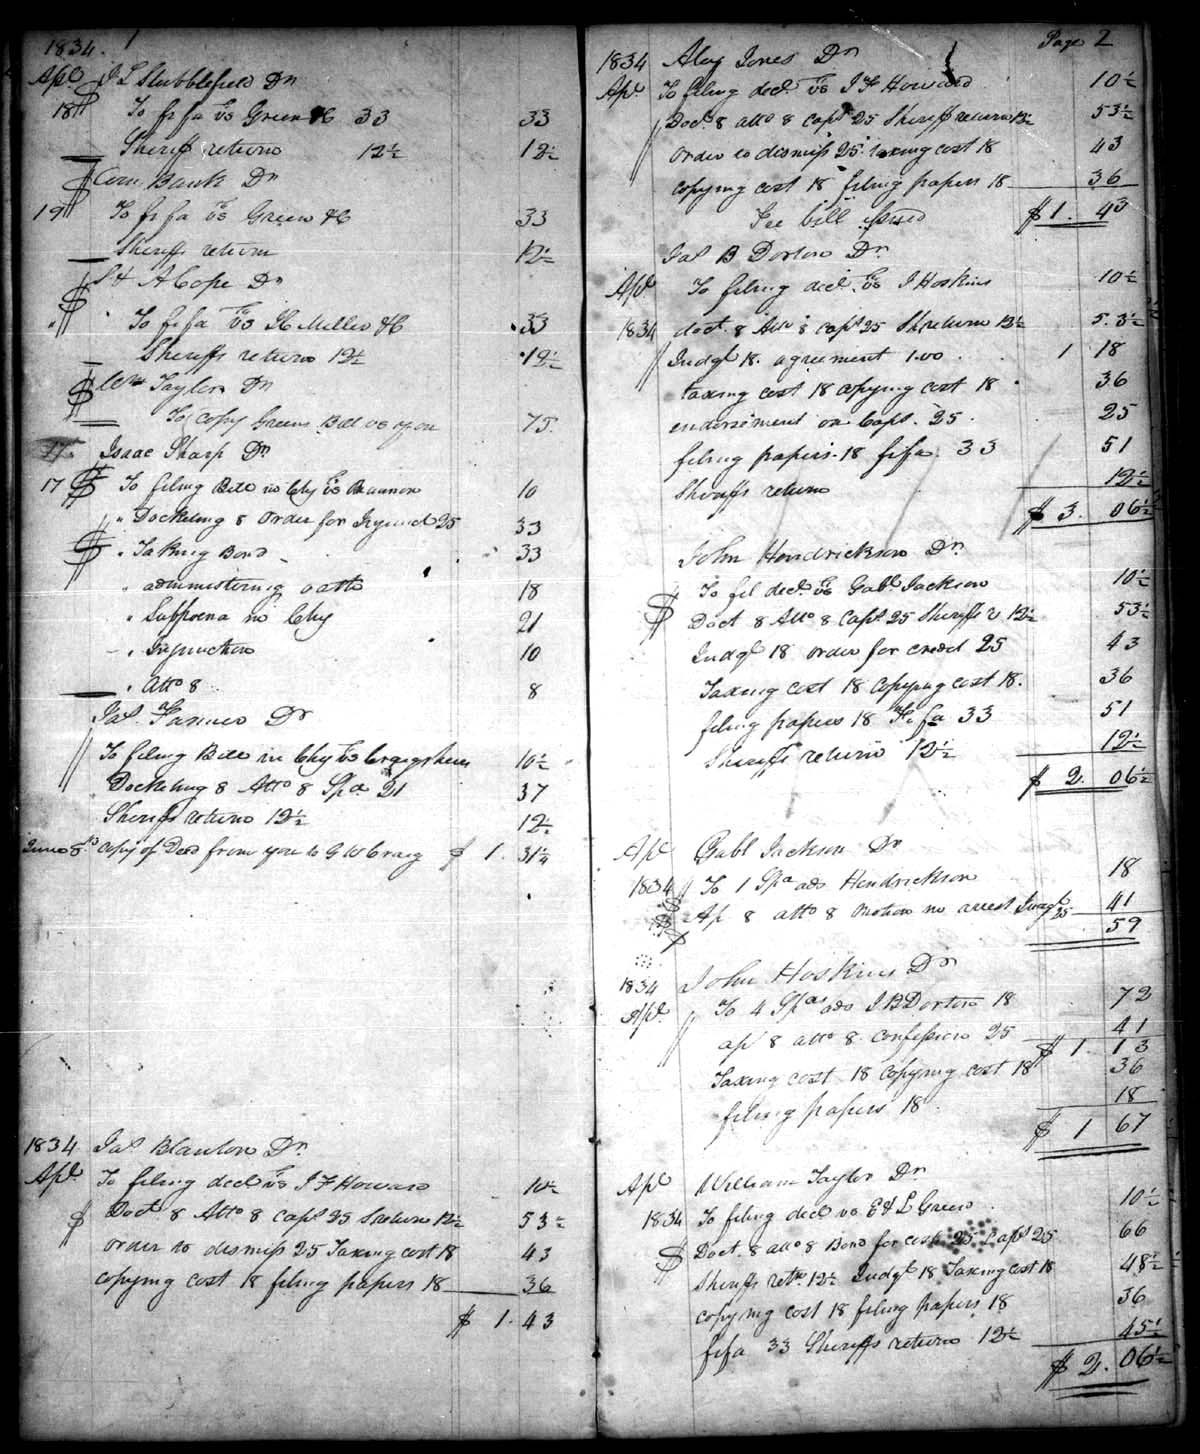 1834. 1
Apl. J L Stubblefield Dr
18 To fi fa vs Green &C 33 33
Sheriffs return 12½ 12½
Com. Bank Dr
19 To fi fa vs Green &C 33
Sheriffs return 12½
A Cope Dr
" To fi fa vs Miller &C 33
Sheriffs return 12½ 12½
Wm Taylor Dr
To copy Greens Bill vs you 75
17 Isaac Sharp Dr
17 To filing Bill in Chy vs Brannon 10
" Docketing 8 Order for Injunct 25 33
" Taking Bond 33
" administering oath 18
" Subpoena in Chy 21
" Injunction 10
" Atto 8 8
Jas. Farmer Dr
To filing Bill in Chy vs 10½
Docketing 8 Atto 8 Spa 21 37
Sheriffs return 12½ 12½
June 8 copy of Deed from you to G W Craig $ 1. 31¼
1834 Jas Blanton Dr
Apl. To filing decl vs J F Howard 10½
Doct. 8 Atto 8 caps 25 S return 12½ 53½
order to dismiss 25 Taxing cost 18 43
copying cost 18 filing papers 18 36
$ 1. 43
Page 2
1834 Aley Jones Dr
Apl. To filing decl. vs J F Howard 10½
Doct. 8 atto 8 caps 25 Sheriffs return 12½ 53½
order to dismiss 25 taxing cost 18 43
copying cost 18 filing papers 18 36
Fee bill issued $ 1. 43
Jas B Dorton Dr
Apl. To filing decl. vs J Hoskins 10½
1834 doct. 8 Atto 8 caps 25 Sh return 12½ 53½
Judgt 18. agreement 1.00 1 18
taxing cost 18 copying cost 18 36
endorsement on Caps. 25 25
filing papers 18 fi fa 33 51
Sheriffs return 12½
$ 3. 06½
John Hendrickson Dr
To fil decl. vs Gabl. Jackson 10½
Doct 8 Atto 8 Caps 25 Sheriffs r 12½ 53½
Judgt 18 order for credit 25 43
Taxing cost 18 copying cost 18. 36
filing papers 18 Fi fa 33 51
Sheriffs return 12½ 12½
$ 2. 06½
Apl. Gabl Jackson Dr
1834 To 1 Spa ads Hendrickson 18
Ap 8 atto 8 motion in arrest Judgt 25 41
59
1834 John Hoskins Dr
Apl. To 4 Spas ads J B Dorton 18 72
ap 8 atto 8 confession 25 41
$ 1. 13
Taxing cost 18 copying cost 18 36
filing papers 18. 18
$ 1 67
Apl William Taylor Dr
1834 To filing decl vs E & L Green 10½
Doct. 8 atto 8 Bond for cost 25 Caps 25 66
Sheriffs retn 12½ Judgt 18 Taxing cost 18 48½
copying cost 18 filing papers 18 36
fi fa 33 Sheriffs return 12½ 45½
$ 2. 06½